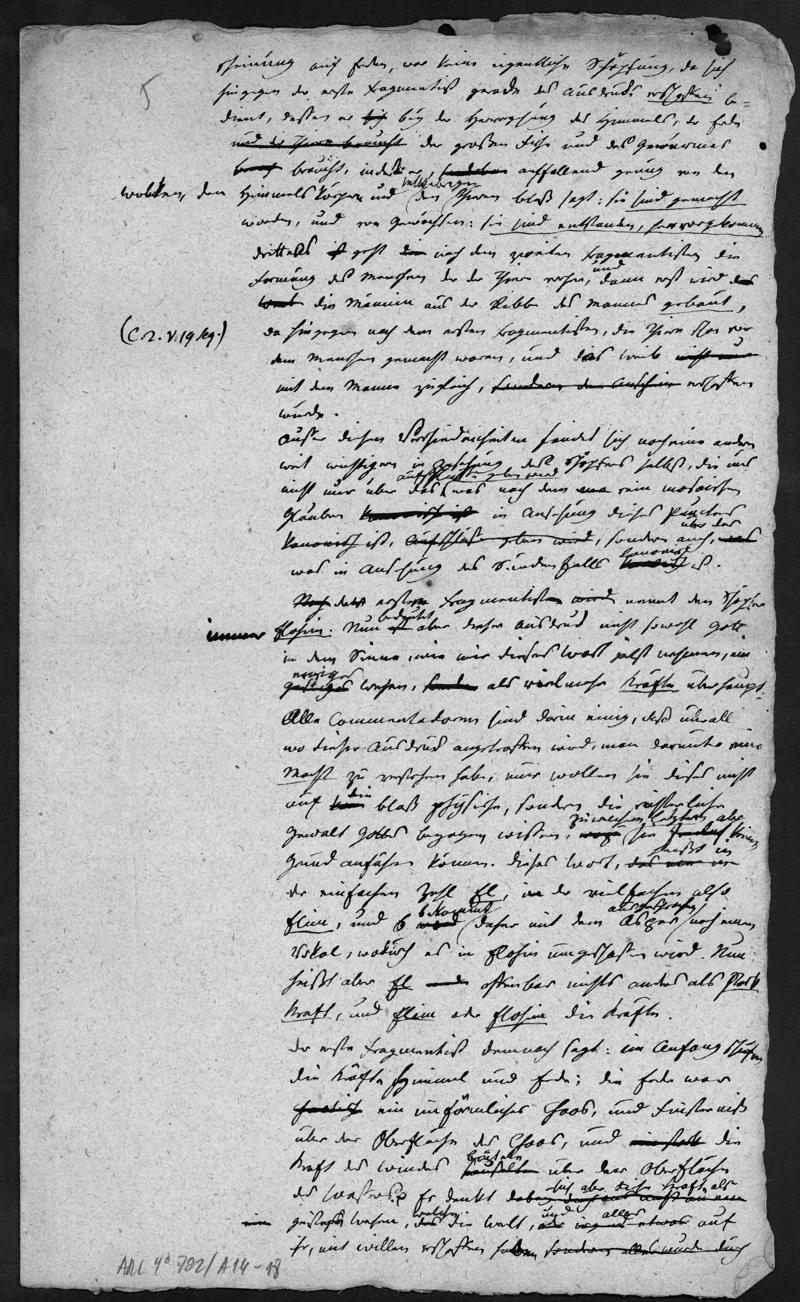 5
scheinung auf Erden, war keine eigentliche Schöpfung, da sich
hingegen der erste Fragmentist gerade des Ausdruks erschaffen be=
dient, dessen er sich bey der Hervorgehung des Himmels, der Erde
und der Thiere braucht der großen Fische und des Gewürmes
braucht, indessen er, auffallend genug von den
Wolken, den Himmels Körpern und den Thieren bloß sagt: sie sind gemacht
worden, und von Gewächsen: sie sind entstanden, hervorgekommen
drittens geht nach dem zweiten Fragmentisten die
Formung des Menschen der der Thiere vorher, und dann erst wird das
Weib die Männin aus der Ribbe des Mannes gebaut,
(C. 2. v. 19 sq.) da hingegen nach dem ersten Fragmentisten, die Thiere schon vor
dem Menschen gemacht waren, und das Weib
mit dem Manne zugleich, erschaffen
wurde.
Außer diesen Verschiedenheiten findet sich noch eine andere
weit wichtigere in Ansehung des Schöpfers selbst, die uns
nicht nur über das was nach dem rein mosaischen
Glauben in Ansehung dieses Punctes
kanonisch ist, Aufschlüsse geben wird, sondern auch, über das
was in Ansehung des Sündenfalls kanonisch ist.
Der erste Fragmentist nennt den Schöpfer
immer Elohim. Nun bedeutet aber dieser Ausdruck nicht sowohl Gott
in dem Sinne, wie wir dieses Wort jetzt nehmen, ein
einziges geistiges Wesen, als vielmehr Kräfte überhaupt.
Alle Commentatoren sind darin einig, daß überall
wo dieser Ausdruck angetroffen wird, man darunter eine
Macht zu verstehen habe, nur wollen sie dieses nicht
auf die bloß physische, sondern die richterliche
Gewalt Gottes bezogen wissen, zu welchem letztern aber sie keinen
Grund anführen können. Dieses Wort, heißt in
der einfachen Zahl El, in der vielfachen also
Elim, und bekommt daher mit dem ausgesprochen noch einen
Vokal, wodurch es in Elohim umgeschaffen wird. Nun
heißt aber El offenbar nichts anders als Stark
Kraft, und Elim oder Elohim die Kräfte.
Der erste Fragmentist demnach sagt: im Anfang schufen
die Kräfte Himmel und Erde; die Erde war
ein unförmliches Chaos, und Finsterniß
über der Oberfläche des Chaos, und die
Kraft des Windes säuselte über der Oberfläche
des Wassers. Er denkt sich aber diese Kraft als
ein geistiges Wesen, welches die Welt, und alles auf
ihr, mit Willen erschaffen haben sondern alles wurde durch
ARC 4° 792/A14-18